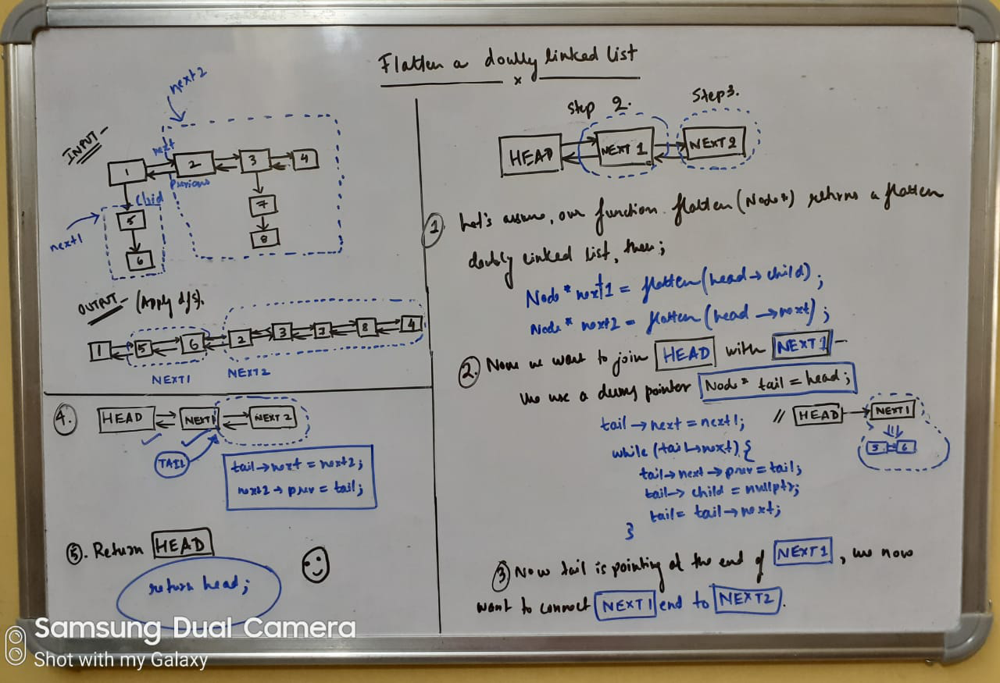 Flatten a doubly linked list
x
next2
INPUT -
1
next
previous
2
3
4
child
next1
5
6
7
8
OUTPUT - (Apply dfs).
1 5 6 2 3 7 8 4
NEXT1 NEXT2
4. HEAD NEXT1 NEXT 2
TAIL
tail→next = next2;
next2→prev = tail;
5. Return HEAD
return head;
Step 2. Step 3.
HEAD NEXT 1 NEXT 2
1 Let's assume, our function flatten (Node*) returns a flatten
doubly linked list, then;
Node* next1 = flatten(head→child);
Node* next2 = flatten(head→next);
2. Now we want to join HEAD with NEXT1 -
we use a dummy pointer Node* tail = head;
tail→next = next1;
// HEAD NEXT1
5 6
while (tail→next) {
tail→next→prev = tail;
tail→child = nullptr;
tail = tail→next;
}
3 Now tail is pointing at the end of NEXT1, we now
want to connect NEXT1 end to NEXT2.
Samsung Dual Camera
Shot with my Galaxy